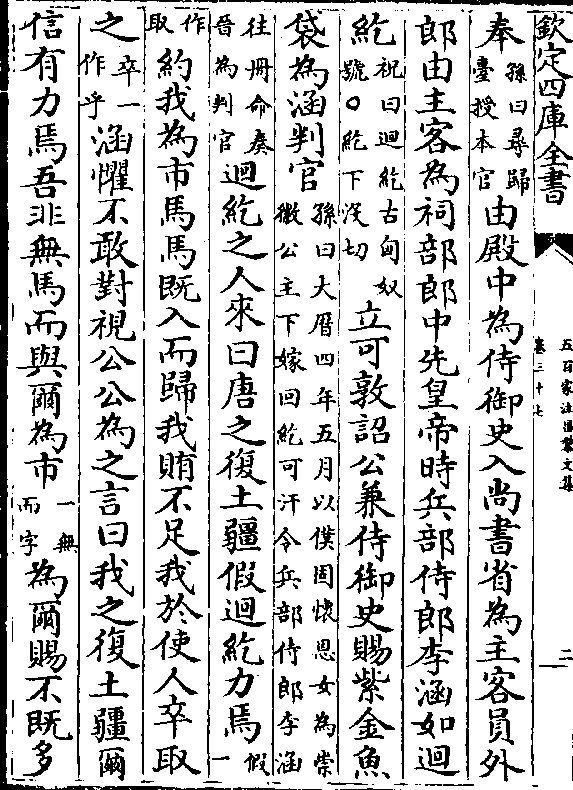 欽定四庫全書
五百家注昌黎文集
卷三十七
二
奉孫曰尋歸臺授本官由殿中為侍御史入尚書省為主客員外
郎由主客為祠部郎中先皇帝時兵部侍郎李涵如迴
紇祝曰迴紇古匈奴號〇紇下沒切立可敦詔公兼侍御史賜紫金魚
袋為涵判官孫曰大曆四年五月以僕固懷恩女為崇徽公主下嫁回紇可汗令兵部侍郎李涵
往冊命奏晉為判官迴紇之人來曰唐之復土疆假迴紇力焉假一
作取約我為市馬馬既入而歸我賄不足我於使人卒取
之卒一作乎涵懼不敢對視公公為之言曰我之復土疆爾
信有力焉吾非無馬而與爾為市一無而字為爾賜不既多